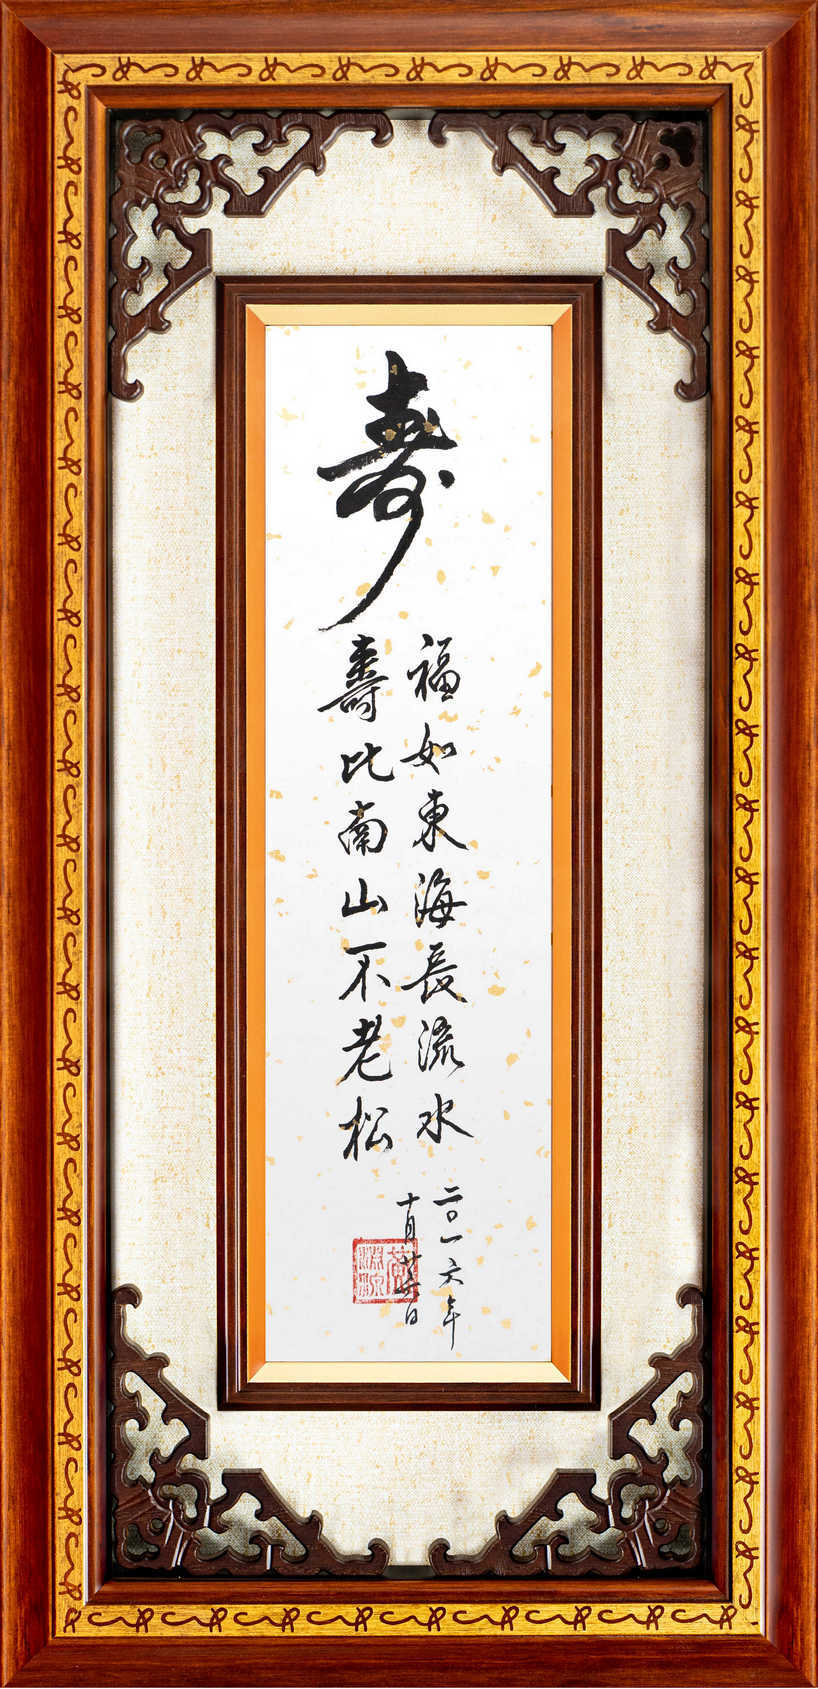 寿
福如東海長流水
壽比南山不老松
二〇一六年
十月廿六日